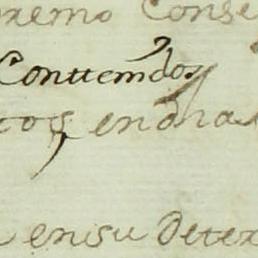 premo Conse
Conttemdos
tos endha
ensu Deter